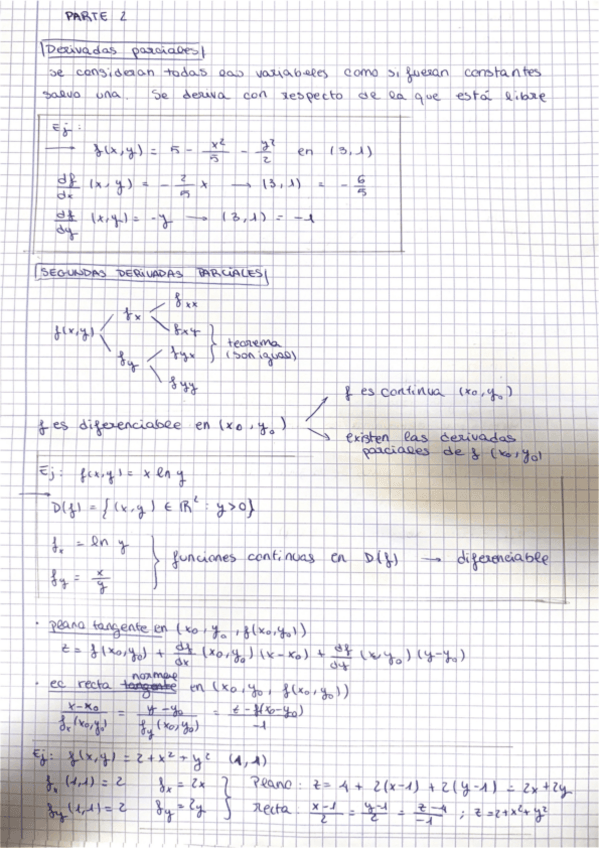 PARTE 2
Derivadas parciales
se consideran todas las variables como si fueran constantes
salvo una. Se deriva con respecto de la que está libre
Ej:
f(x,y) = 5 - x²/5 - y²/2 en (3,1)
df/dx (x,y) = - 2/5 x → (3,1) = - 6/5
df/dy (x,y) = -y → (3,1) = -1
SEGUNDAS DERIVADAS PARCIALES
f(x,y) fx fxx
fxy
fy fyx
fyy
} teorema
(son igual)
f es diferenciable en (x0, y0)
f es continua (x0, y0)
existen las derivadas
parciales de f (x0, y0)
Ej: f(x,y) = x ln y
D(f) = {(x,y) ∈ ℝ² : y>0}
fx = ln y
fy = x/y
} funciones continuas en D(f) → diferenciable
· plano tangente en (x0, y0, f(x0,y0))
z = f(x0,y0) + df/dx (x0,y0) (x-x0) + df/dy (x,y0) (y-y0)
normale
· ec recta tangente en (x0, y0, f(x0,y0))
x-x0/fx(x0,y0) = y-y0/fy(x0,y0) = z-f(x0-y0)/-1
Ej: f(x,y) = 2+x²+y² (1,1)
fx (1,1) = 2 fx = 2x } Plano: z = 4 + 2(x-1) + 2(y-1) = 2x+2y
fy (1,1) = 2 fy = 2y } recta: x-1/2 = y-1/2 = z-4/-1 ; z=2+x²+y²